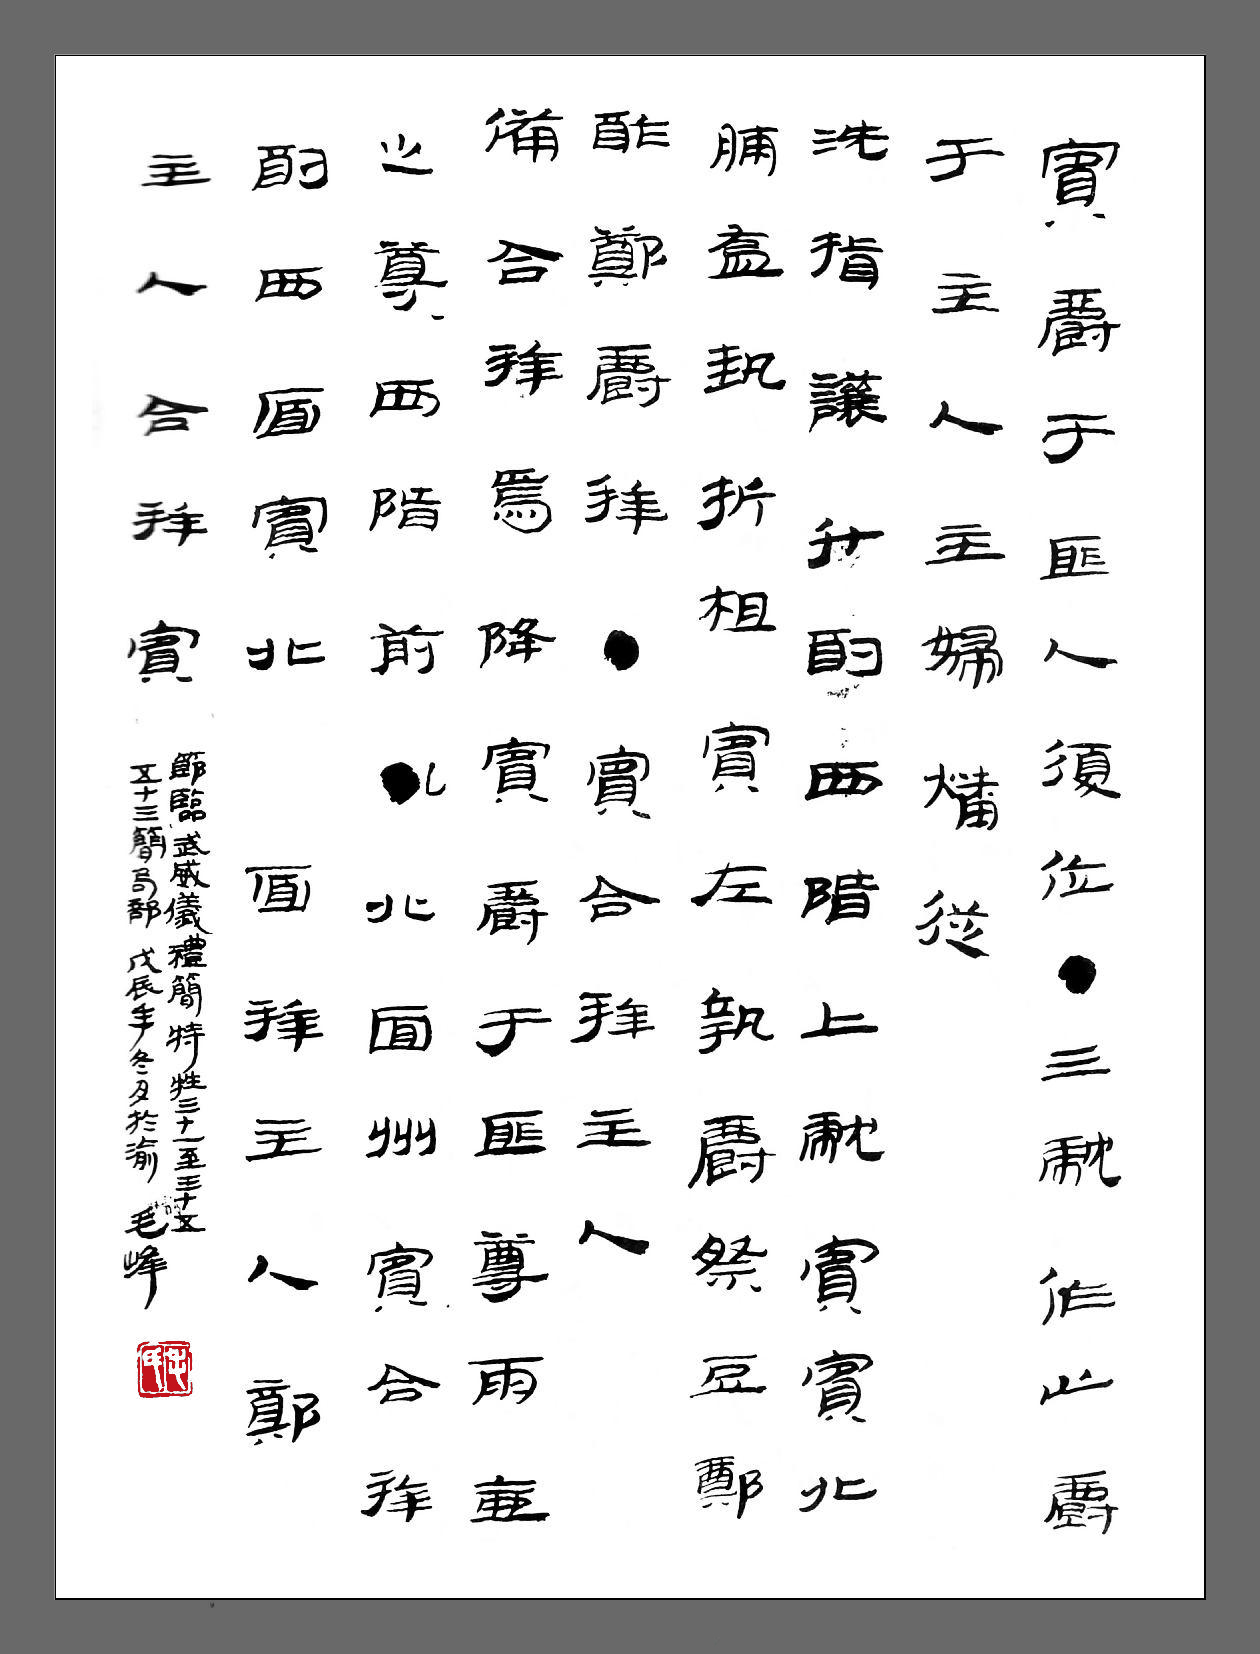 賓爵于匪人須位●三獻作止爵
于主人主婦燔從
洗指讓升酌西階上獻賓賓北
脯盍執折柤賓左執爵祭豆鄭
酢鄭爵拜●賓合拜主人
備合拜焉降賓爵于匪尊雨壺
之尊西階前●北面州賓合拜
酌西面賓北面拜主人鄭
主人合拜賓
節臨武威儀禮簡特牲三十一至三十五
五十三簡局部 戊辰年冬月於渝 毛峰